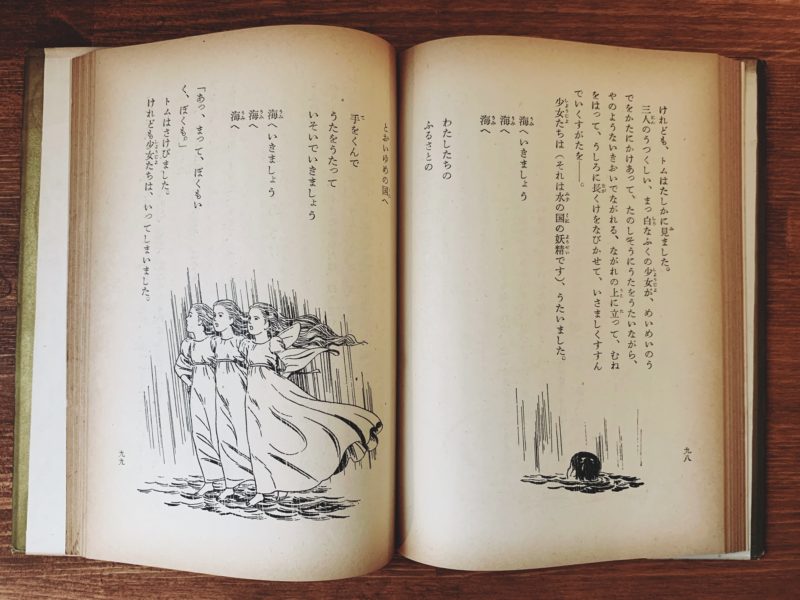 けれども、トムはたしかに見ました。
三人のうつくしい、まっ白なふくの少女が、めいめいのう
でをかたにかけあって、たのしそうにうたをうたいながら、
やのようないきおいでながれる、ながれの上に立って、むね
をはって、うしろに長くけをなびかせて、いさましくすすん
でいくすがたを――。
少女たちは（それは水の国の妖精です）、うたいました。
海へいきましょう
海へ
海へ
わたしたちの
ふるさとの
九八
とおいゆめの国へ
手をくんで
うたをうたって
いそいでいきましょう
海へいきましょう
海へ
海へ
「あっ、まって、ぼくもい
く、ぼくも。」
トムはさけびました。
けれども少女たちは、いってしまいました。
九九